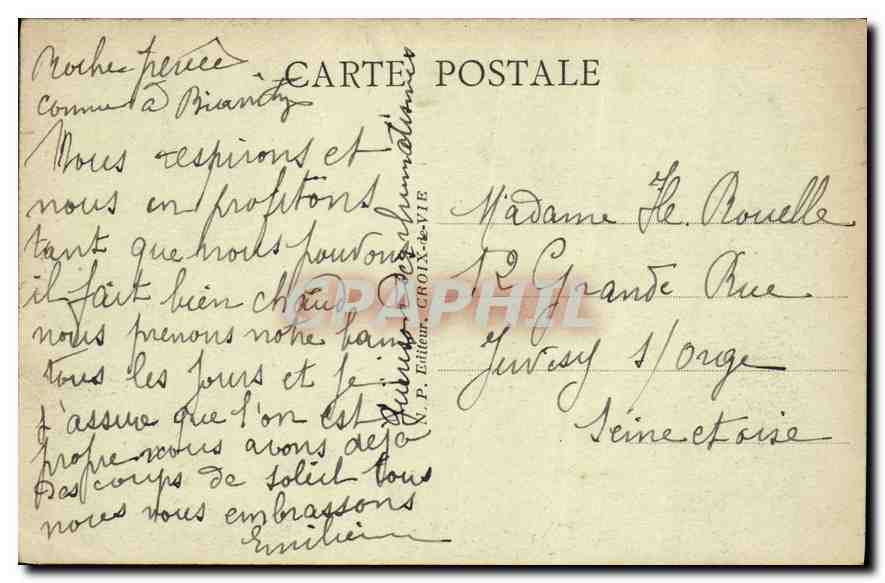 Roche percée
comme à Biarritz
CARTE POSTALE
Nous respirons et
nous en profitons
tant que nous pouvons
il fait bien chaud
nous prenons notre bain
tous les jours et je
t'assure que l'on est
propre nous avons déjà
des coups de soleil tous
nous vous embrassons
Emilien
N. P. Editeur. CROIX-de-VIE
Madame H. Rouelle
12 Grande Rue
Juvisy s/ Orge
Seine et oise
CPAPHIL